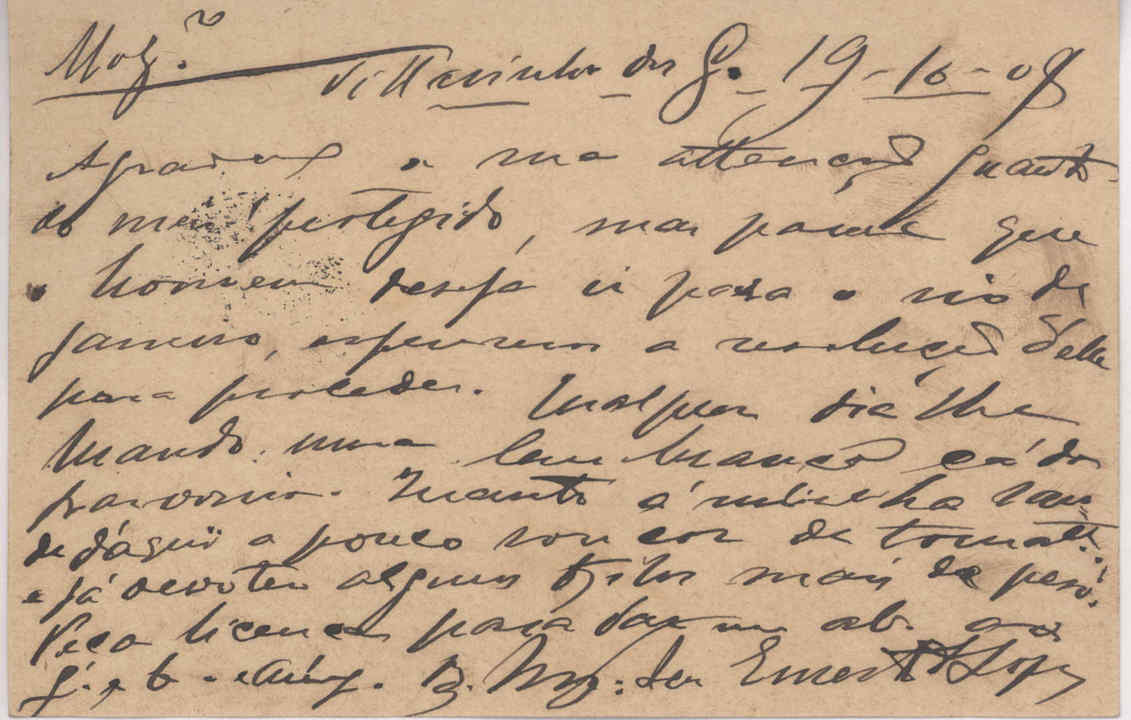 Villarinho dos G. 19-10-08
Agradeço a sua attenção quanto
ao meu protegido, mas parece que
o homem deseja ir para o rio de
janeiro, esperemos a resolução d'elle
para proceder. Qualquer dia lhe
Mando uma lembrança cá do
Quanto á minha sau-
de d'aqui a pouco sou cor de tomatte
e já devo ter alguns kilos mais de peso.
Peço licença para dar um ab. aos
Ernesto Lopes